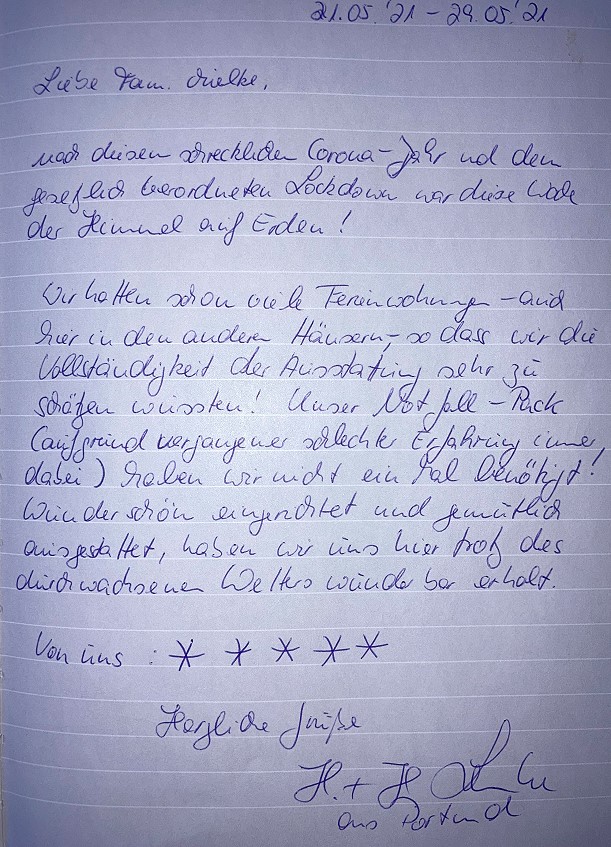 21.05.'21 - 29.05.'21
Liebe Fam. Mielke,
nach diesem schrecklichen Corona-Jahr und dem
gesetzlich verordneten Lockdown war diese Woche
der Himmel auf Erden!
Wir hatten schon viele Ferienwohnungen - auch
hier in den anderen Häusern, - so dass wir die
Vollständigkeit der Ausstattung sehr zu
schätzen wussten! Unser Notfall-Pack
(aufgrund vergangener schlechter Erfahrung immer
dabei) haben wir nicht ein Mal benötigt!
Wunderschön eingerichtet und gemütlich
ausgestattet, haben wir uns hier trotz des
durchwachsenen Wetters wunderbar erholt.
Von uns : * * * * *
Herzliche Grüße
H. + H.
aus Dortmund